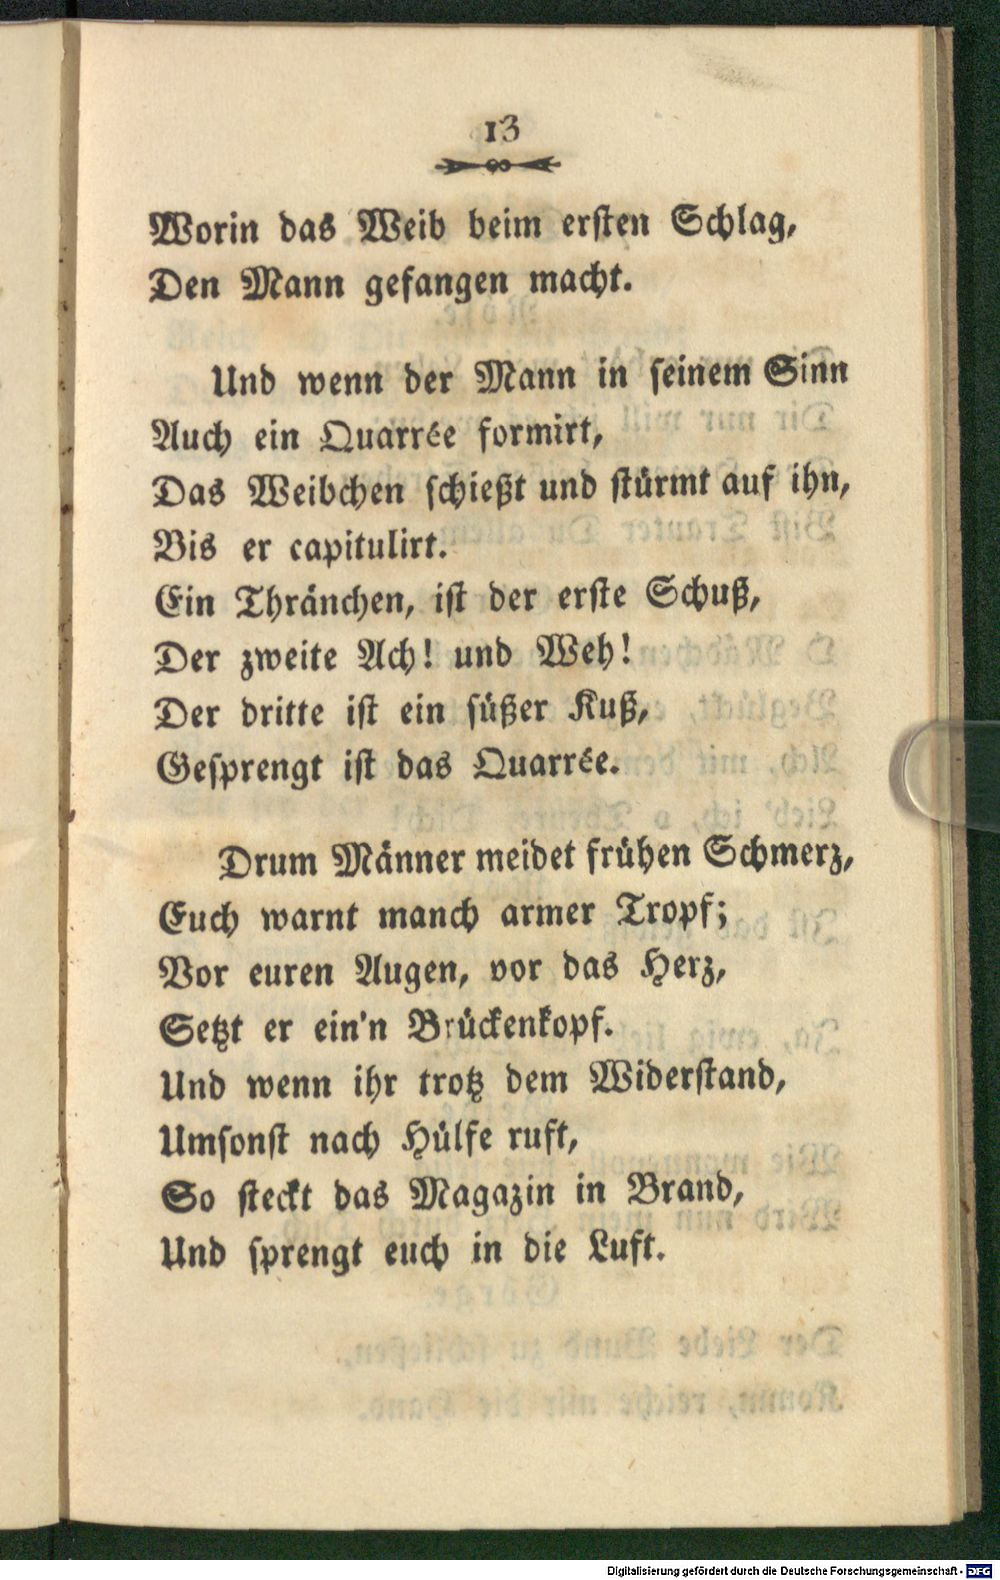 13
Worin das Weib beim ersten Schlag,
Den Mann gefangen macht.
Und wenn der Mann in seinem Sinn
Auch ein Quarrée formirt,
Das Weibchen schießt und stürmt auf ihn,
Bis er capitulirt.
Ein Thränchen, ist der erste Schuß,
Der zweite Ach! und Weh!
Der dritte ist ein süßer Kuß,
Gesprengt ist das Quarrée.
Drum Männer meidet frühen Schmerz,
Euch warnt manch armer Tropf;
Vor euren Augen, vor das Herz,
Setzt er ein'n Brückenkopf.
Und wenn ihr trotz dem Widerstand,
Umsonst nach Hülfe ruft,
So steckt das Magazin in Brand,
Und sprengt euch in die Luft.
Digitalisierung gefördert durch die Deutsche Forschungsgemeinschaft - DFG